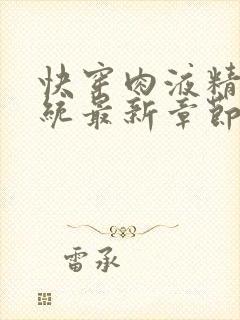 快穿肉液精
统最新章节
雷承